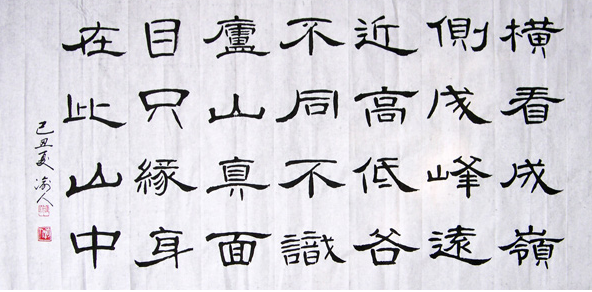 橫看成嶺
側成峰遠
近高低谷
不同不識
廬山真面
目只緣身
在此山中
己丑夏 渝人